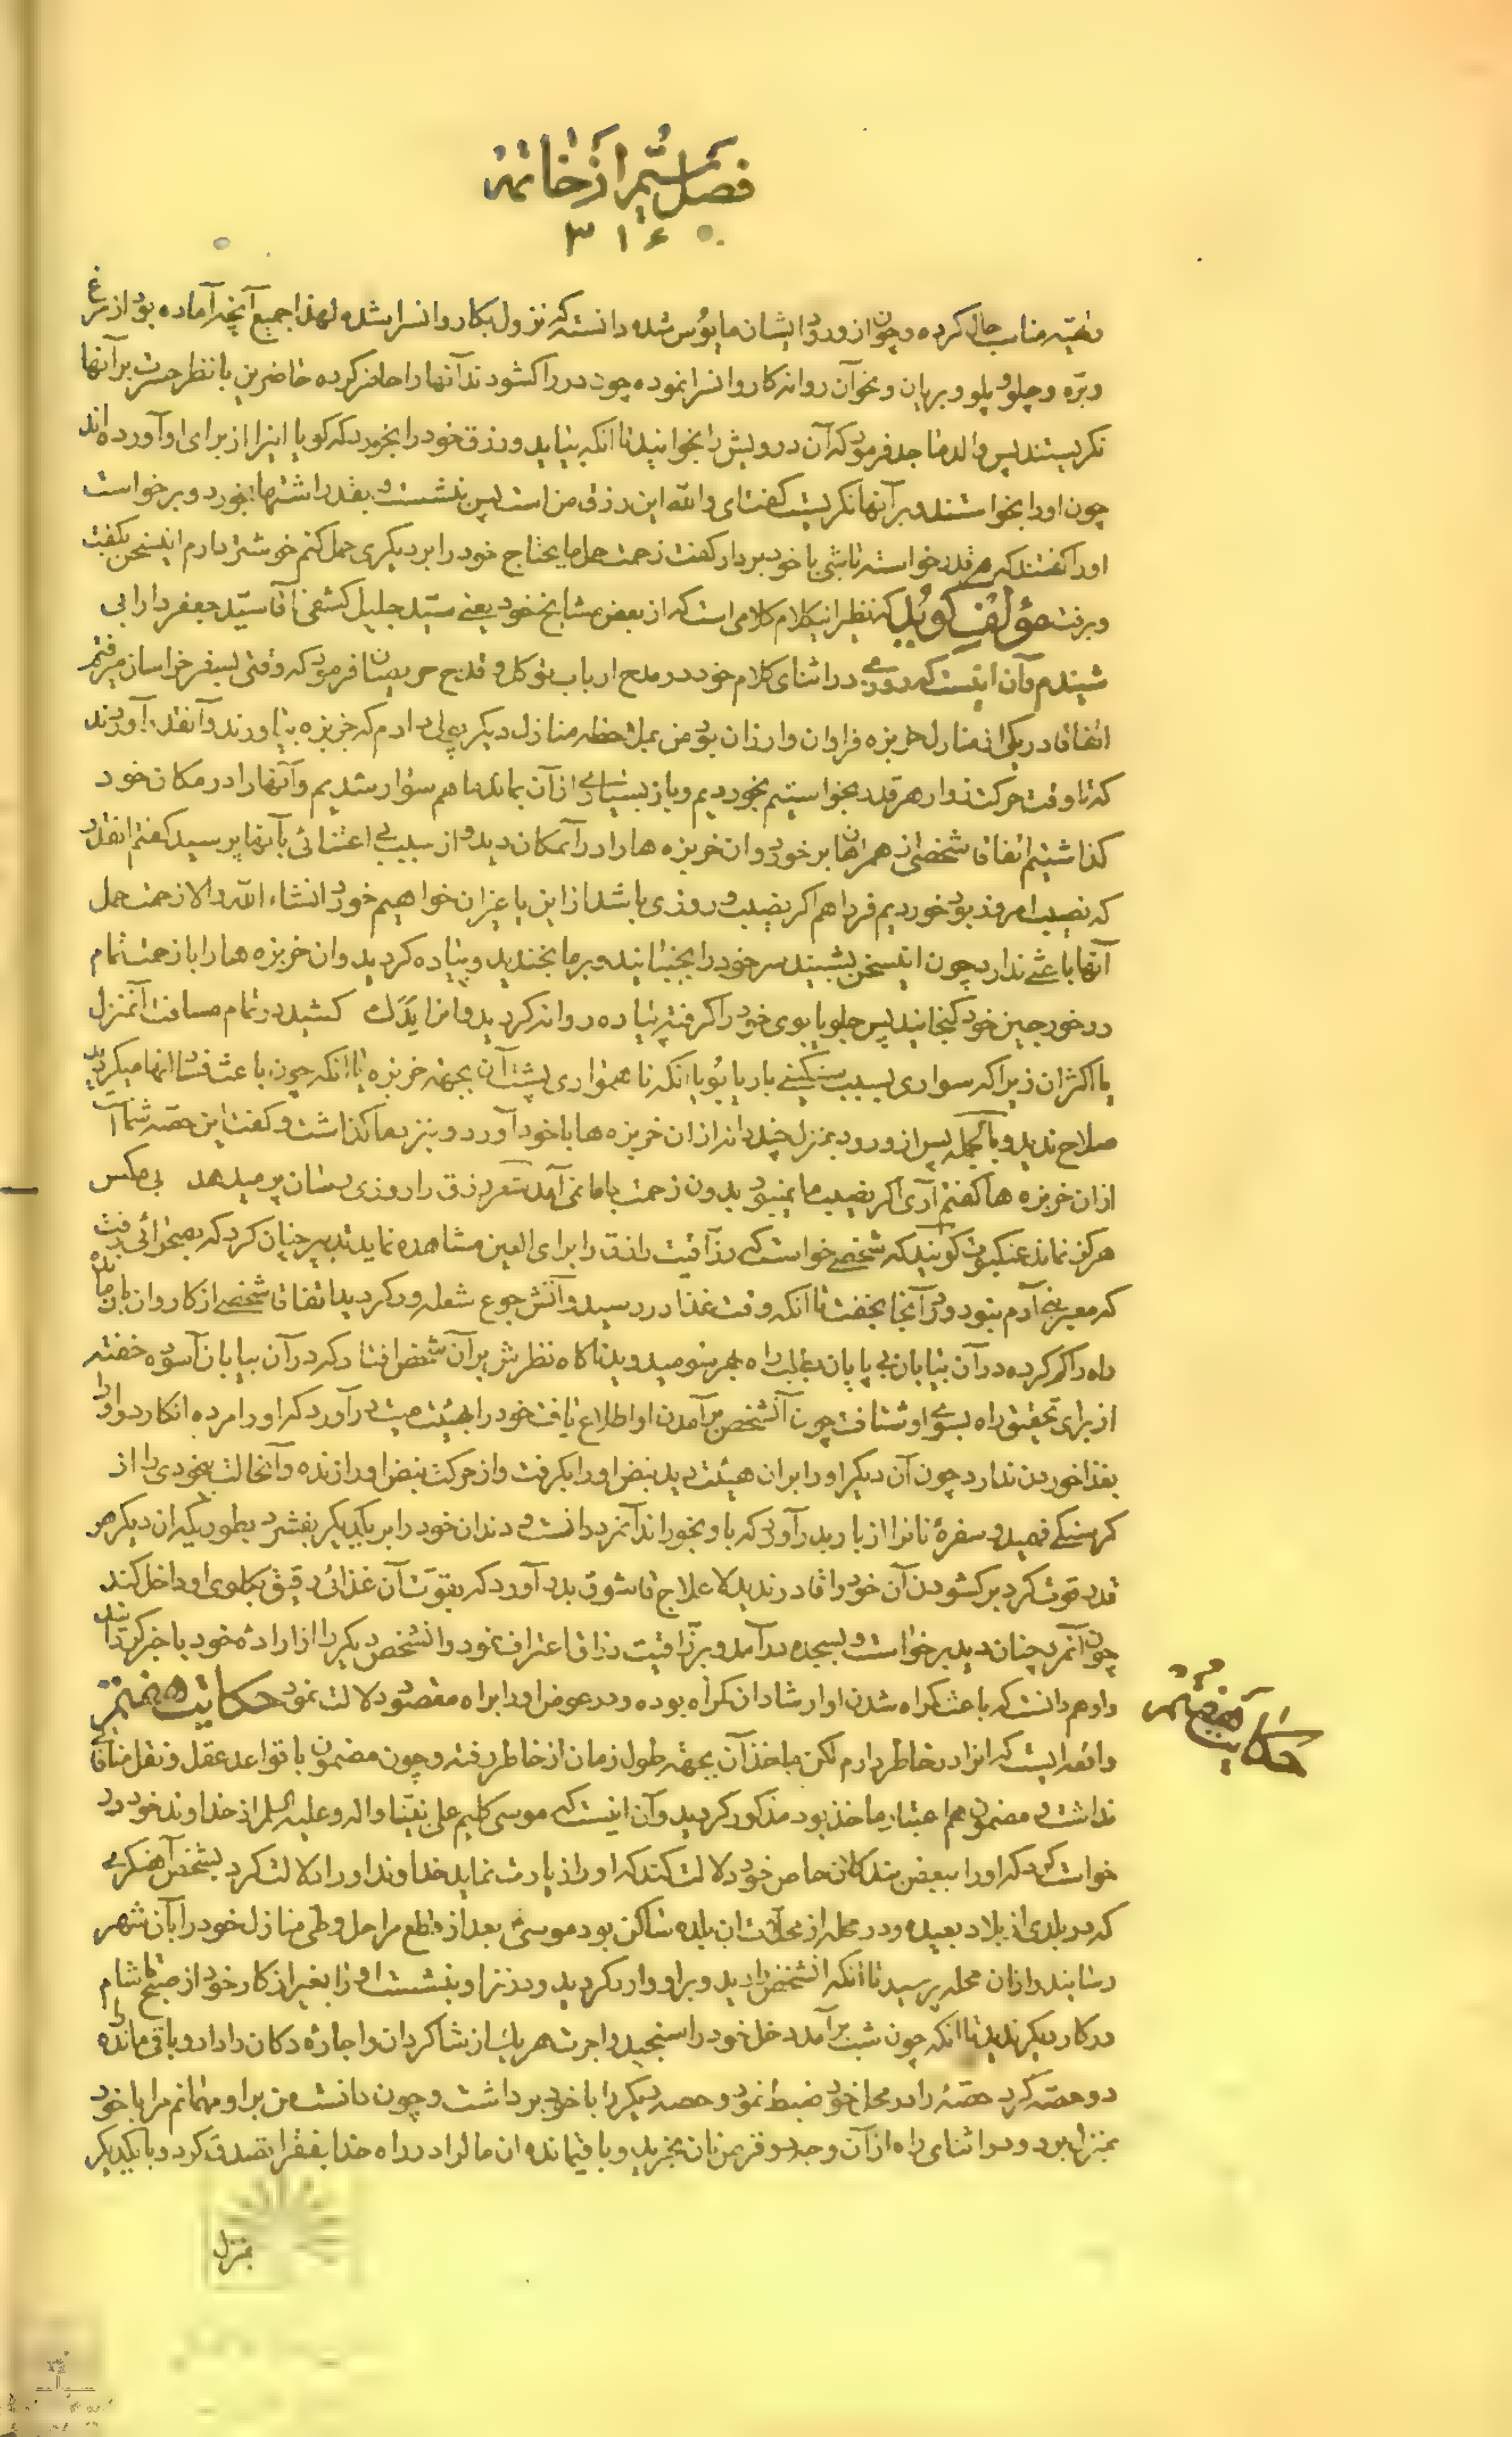 فصل ششم از خاتمه
۳۱۶
تهیه مناسب حال کرده و چون از ورود ایشان مایوس شده دانسته که نزول بکاروانسرا شده لهذا جمیع آنچه آماده بود از مرغ
و بره و چلو و پلو و بریان و نحو آن روانه کاروانسرا نموده چون در را کشودند آنها را حاضر کرده حاضرین با نظر حسرت بر آنها
نکریستند پس والد ماجد فرمود که آن درویش را بخوانید تا آنکه بیاید و رزق خود را بخورد که کویا اینرا از برای او آورده‌اند
چون او را بخواستند و بر آنها نکریست کفت ای والله این رزق من است پس بنشست و بقدر اشتها بخورد و برخواست
او را کفتند که هر قدر خواسته باشی با خود بردار کفت زحمت حمل مایحتاج خود را بر دیکری حمل کنم خوشتر دارم اینسخن بکفت
و برفت مؤلف کوید که نظیر اینکلام کلامی است که از بعض مشایخ خود یعنی سید جلیل کشفی آقا سید جعفر دارابی
شنیدم و آن اینست که روزی در اثنای کلام خود در مدح ارباب توکل و قدح حریصان فرمود که وقتی بسفر خراسان میرفتم
اتفاقا در یکی از منازل خربزه فراوان و ارزان بود من بملاحظه منازل دیکر پولی دادم که خربزه بیاورند و آنقدر آوردند
که تا وقت حرکت زوار هر قدر بخواستیم بخوردیم و باز بسیاری از آن بماند ما هم سوار شدیم و آنها را در مکان خود
کذاشتیم اتفاقا شخصی از همراهان بر خورد و ان خربزه ها را در آنمکان دید و از سبب بی اعتنائی بآنها پرسید کفتم انقدر
که نصیب امروز بود خوردیم فردا هم اکر نصیب و روزی باشد از این یا غیر ان خواهیم خورد انشاء الله والا زحمت حمل
آنها باعثی ندارد چون اینسخن بشنید سر خود را بجنبانید و بر ما بخندید و پیاده کردید و ان خربزه ها را با زحمت تمام
در خورجین خود کنجانید پس جلو یابوی خود را کرفته پیاده روانه کردید و انرا یدک کشید در تمام مسافت آنمنزل
یا اکثر ان زیرا که سواری بسبب سنکینی بار یابو یا انکه ناهمواری پشت آن بجهة خربزه یا انکه چون باعث فساد انها میکردید
صلاح ندید و بالجمله پس از ورود بمنزل چند دانه از ان خربزه ها با خود آورد و بنزد ما کذاشت و کفت این حصه شما
از ان خربزه ها کفتم آری اکر نصیب ما نمیبود بدون زحمت با ما نمی آمد شعر رزق را روزی رسان پر میدهد بی مکس
هرکز نماند عنکبوت کویند که شخصی خواست که رزاقیت رازق را برای العین مشاهده نماید تدبیر چنان کرد که بصحرائی رفت
که معبر بنی آدم نبود و در آنجا بخفت تا آنکه وقت غذا در رسید و آتش جوع شعله ور کردید اتفاقا شخصی از کاروان باز مانده
راه را کم کرده در آن بیابان بی پایان بطلب راه بهر سو میدوید ناکاه نظرش بر آن شخص افتاد که در آن بیابان آسوده خفته
از برای تحقیق راه بسوی او شتافت چون آنشخص بر آمدن او اطلاع یافت خود را بهیئت میت در آورد که او را مرده انکارد و او را
بغذا خوردن ندارد چون آن دیکر او را بر ان هیئت دید نبض او را بکرفت و از حرکت نبض او را زنده و آنحالت بیخودی را از
کرسنکی فهمید و سفره نانرا از بار بدر آورد که باو بخوراند آنمرد دانست و دندان خود را بر یکدیکر بفشرد بطوریکه ان دیکر هر
قدر قوت کرد بر کشودن آن خود را قادر ندید لا علاج قاشوق بدر آورد که بقوت آن غذائی رقیق بکلوی او داخل کند
چون آنمرد چنان دید برخواست و بسجده در آمد و بر رزاقیت رزاق اعتراف نمود و انشخص دیکر را از اراده خود با خبر کردانید
و او هم دانست که باعث کمراه شدن او ارشاد ان کمراه بوده و در عوض او را براه مقصود دلالت نمود حکایت هفتم
واقعه ایست که انرا در خاطر دارم لکن ماخذ آن بجهة طول زمان از خاطر رفته و چون مضمون با قواعد عقل و نقل منافاتی
نداشت و مضمون هم اعتبار ماخذ بود مذکور کردید و آن اینست که موسی کلیم علی نبینا و اله و علیه السلم از خداوند خود در
خواست کرد که او را ببعض بندکان خاص خود دلالت کند که او را زیارت نماید خداوند او را دلالت کرد بشخص آهنکری
که در بلدی از بلاد بعیده و در محله از محلات ان بلده ساکن بود موسی بعد از قطع مراحل و طی منازل خود را بآن شهر
رسانید و از ان محله پرسید تا انکه انشخص را دید و بر او وارد کردید و در نزد او بنشست او را بغیر از کار خود از صبح تا شام
در کار دیکر ندید تا انکه چون شب بر آمد دخل خود را سنجید و اجرت هر یک از شاکردان و اجاره دکان را داد و باقی مانده را
دو حصه کرد حصه را در محل خود ضبط نمود و حصه دیکر را با خود برداشت و چون دانست من بر او مهمانم مرا با خود
بمنزل برد و در اثنای راه از آن وجه دو قرص نان بخرید و باقیمانده ان مال را در راه خدا بفقرا تصدق کرد و با یکدیکر
بمنزل
حکایت هفتم